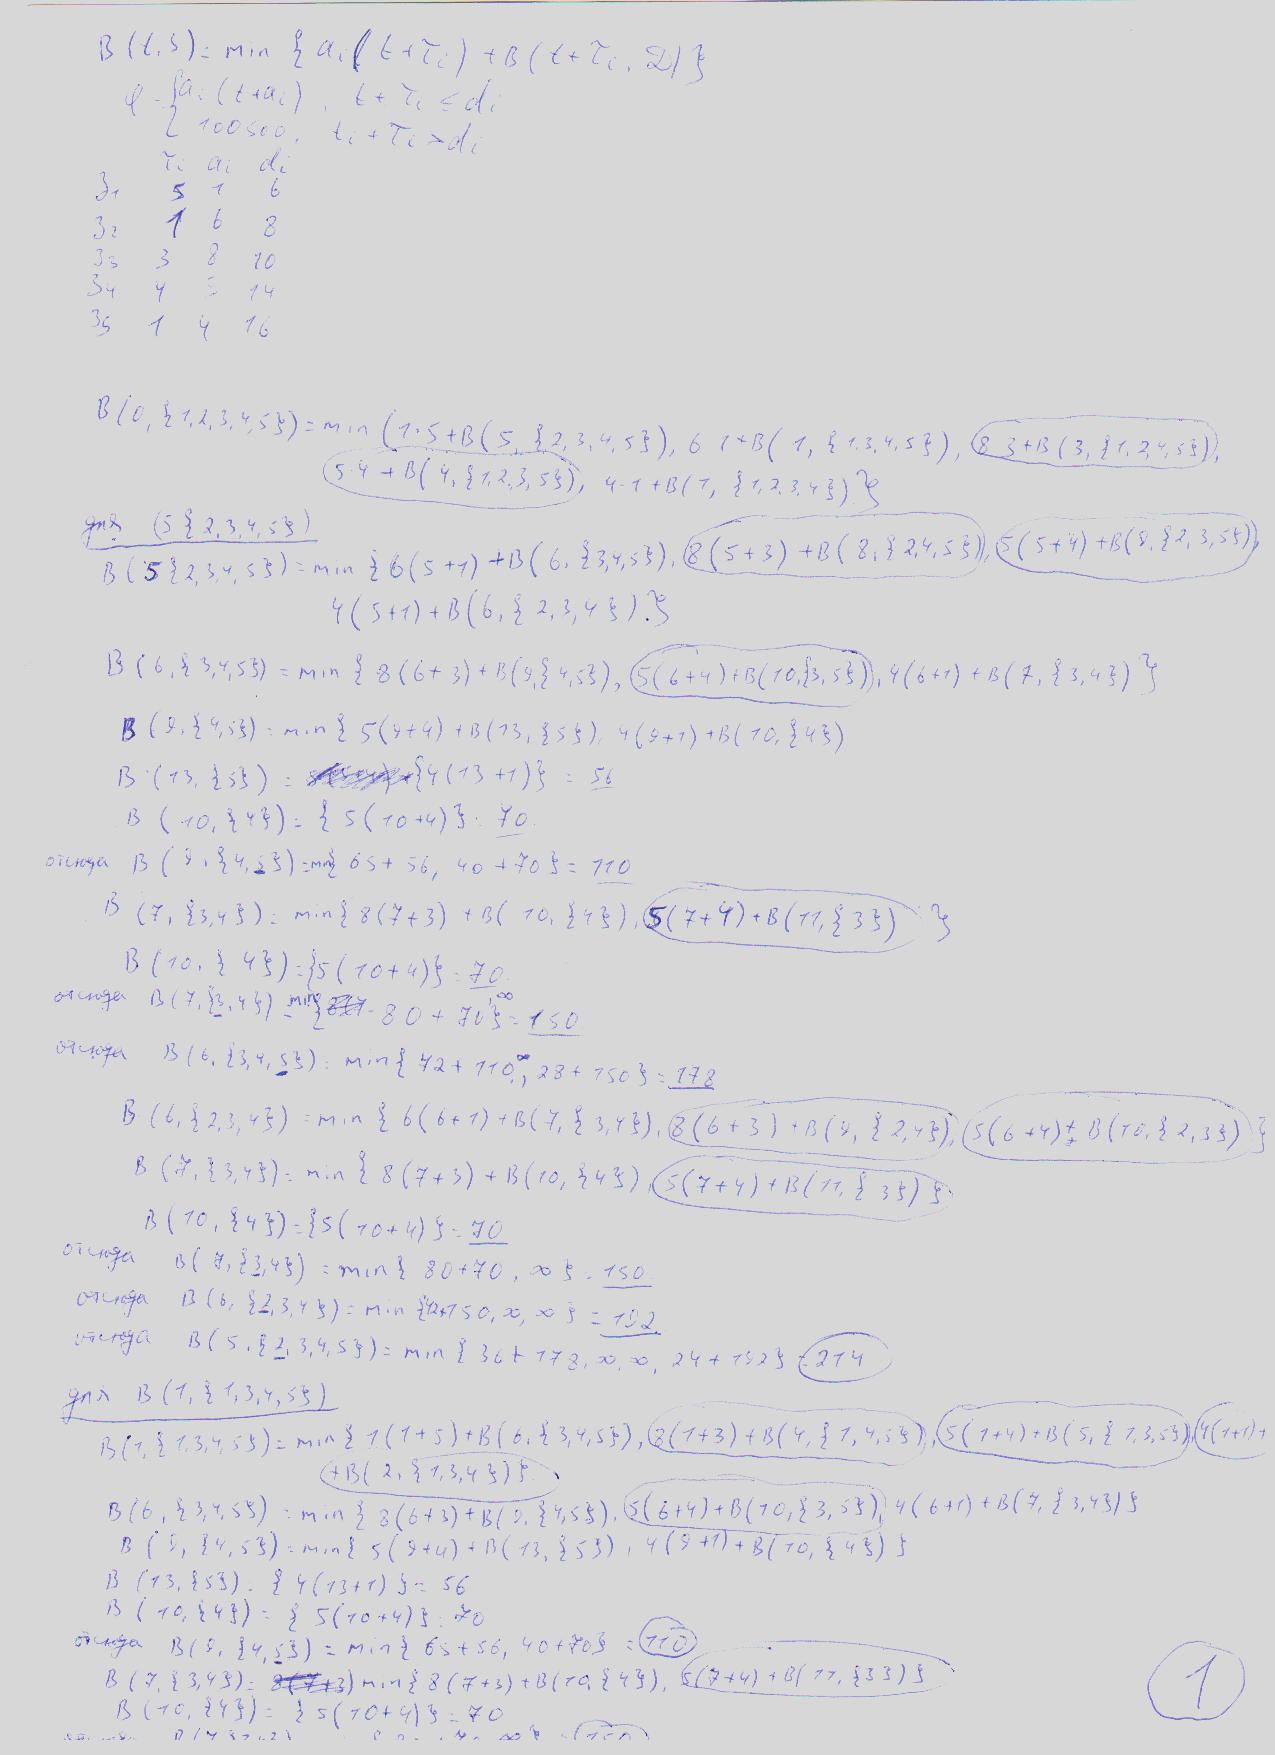 B(t,S) = min { ai(t+τi) + B(t+τi, Д) }
φ = { ai(t+ai), t+τi ≤ di
{ 100500, ti+τi > di
τi ai di
З1 5 1 6
З2 1 6 8
З3 3 8 10
З4 4 5 14
З5 1 4 16
B(0,{1,2,3,4,5}) = min (1·5+B(5,{2,3,4,5}), 6·1+B(1,{1,3,4,5}), 8·3+B(3,{1,2,4,5}),
5·4+B(4,{1,2,3,5}), 4·1+B(1,{1,2,3,4}) }
для (5{2,3,4,5})
B(5{2,3,4,5}) = min { 6(5+1)+B(6,{3,4,5}), 8(5+3)+B(8,{2,4,5}), 5(5+4)+B(9,{2,3,5}),
4(5+1)+B(6,{2,3,4}) }
B(6,{3,4,5}) = min { 8(6+3)+B(9{4,5}), 5(6+4)+B(10,{3,5}), 4(6+1)+B(7,{3,4}) }
B(9,{4,5}) = min { 5(9+4)+B(13,{5}), 4(9+1)+B(10,{4})
B(13,{5}) = {4(13+1)} = 56
B(10,{4}) = {5(10+4)} = 70
отсюда B(9,{4,5}) = min{65+56, 40+70} = 110
B(7,{3,4}) = min{8(7+3)+B(10,{4}), 5(7+4)+B(11,{3}) }
B(10,{4}) = {5(10+4)} = 70
отсюда B(7,{3,4}) = min{80+70, ∞} = 150
отсюда B(6,{3,4,5}) = min{72+110, ∞, 28+150} = 178
B(6,{2,3,4}) = min{6(6+1)+B(7,{3,4}), 8(6+3)+B(9,{2,4}), 5(6+4)+B(10,{2,3}) }
B(7,{3,4}) = min{8(7+3)+B(10,{4}), 5(7+4)+B(11,{3}) }
B(10,{4}) = {5(10+4)} = 70
отсюда B(7,{3,4}) = min{80+70, ∞} = 150
отсюда B(6,{2,3,4}) = min{42+150, ∞, ∞} = 192
отсюда B(5,{2,3,4,5}) = min{36+178, ∞, ∞, 24+192} = 214
для B(1,{1,3,4,5})
B(1,{1,3,4,5}) = min{1(1+5)+B(6,{3,4,5}), 8(1+3)+B(4,{1,4,5}), 5(1+4)+B(5,{1,3,5}), 4(1+1)+
+B(2,{1,3,4}) }
B(6,{3,4,5}) = min{8(6+3)+B(9,{4,5}), 5(6+4)+B(10,{3,5}), 4(6+1)+B(7,{3,4}) }
B(9,{4,5}) = min{5(9+4)+B(13,{5}), 4(9+1)+B(10,{4}) }
B(13,{5}) = {4(13+1)} = 56
B(10,{4}) = {5(10+4)} = 70
отсюда B(9,{4,5}) = min{65+56, 40+70} = 110
B(7,{3,4}) = min{8(7+3)+B(10,{4}), 5(7+4)+B(11,{3}) }
B(10,{4}) = {5(10+4)} = 70
1